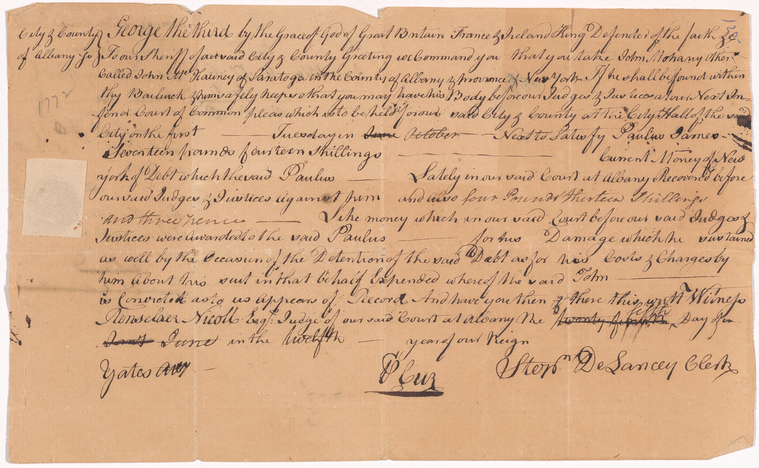 City & County of Albany Ss } George the third by the Grace of God of Great Britain France & Ireland King Defender of the faith &c
To our Sheriff of our said City & County Greeting we Command you that you take John Mohany other
Called John Mc Kainey of Saratoga in the County of Albany & province of New York If he shall be found within
thy Bailwick & him safely keep so that you may have his Body before our Judges & Justices at our Next In
feriour Court of Common pleas which is to be held for our said City & County at the City Hall of the said
City on the first Tuesday in June October Next to Satisfy Paulus James
Seventeen pounds fourteen Shillings Current Money of New
york of Debt which the said Paulus Lately in our said Court at Albany Recovered before
our said Judges & Justices against him and also four Pounds thirteen Shillings
and three pence Like money which in our said Court before our said Judges &
Justices were awarded to the said Paulus for his Damage which he sustained
as well by the Occasion of the Detention of the said Debt as for his Costs & Charges by
him about his suit in that behalf Expended whereof the said John
is Convicted as to us Appears of Record And have you then & there this writ Witness
Renselaer Nicoll Esqr. Judge of our said Court at Albany the twenty fifth Day of
June in the twelfth year of our Reign
Yates Atty P Cur Stepn DeLancey Clerk
1772